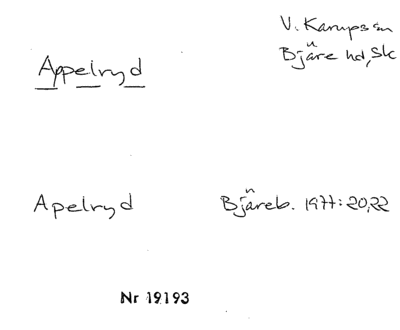 V. Karups sn
Bjäre hd, Sk
Appelryd
Apelryd Bjäreb. 1977: 20, 22
Nr 19193